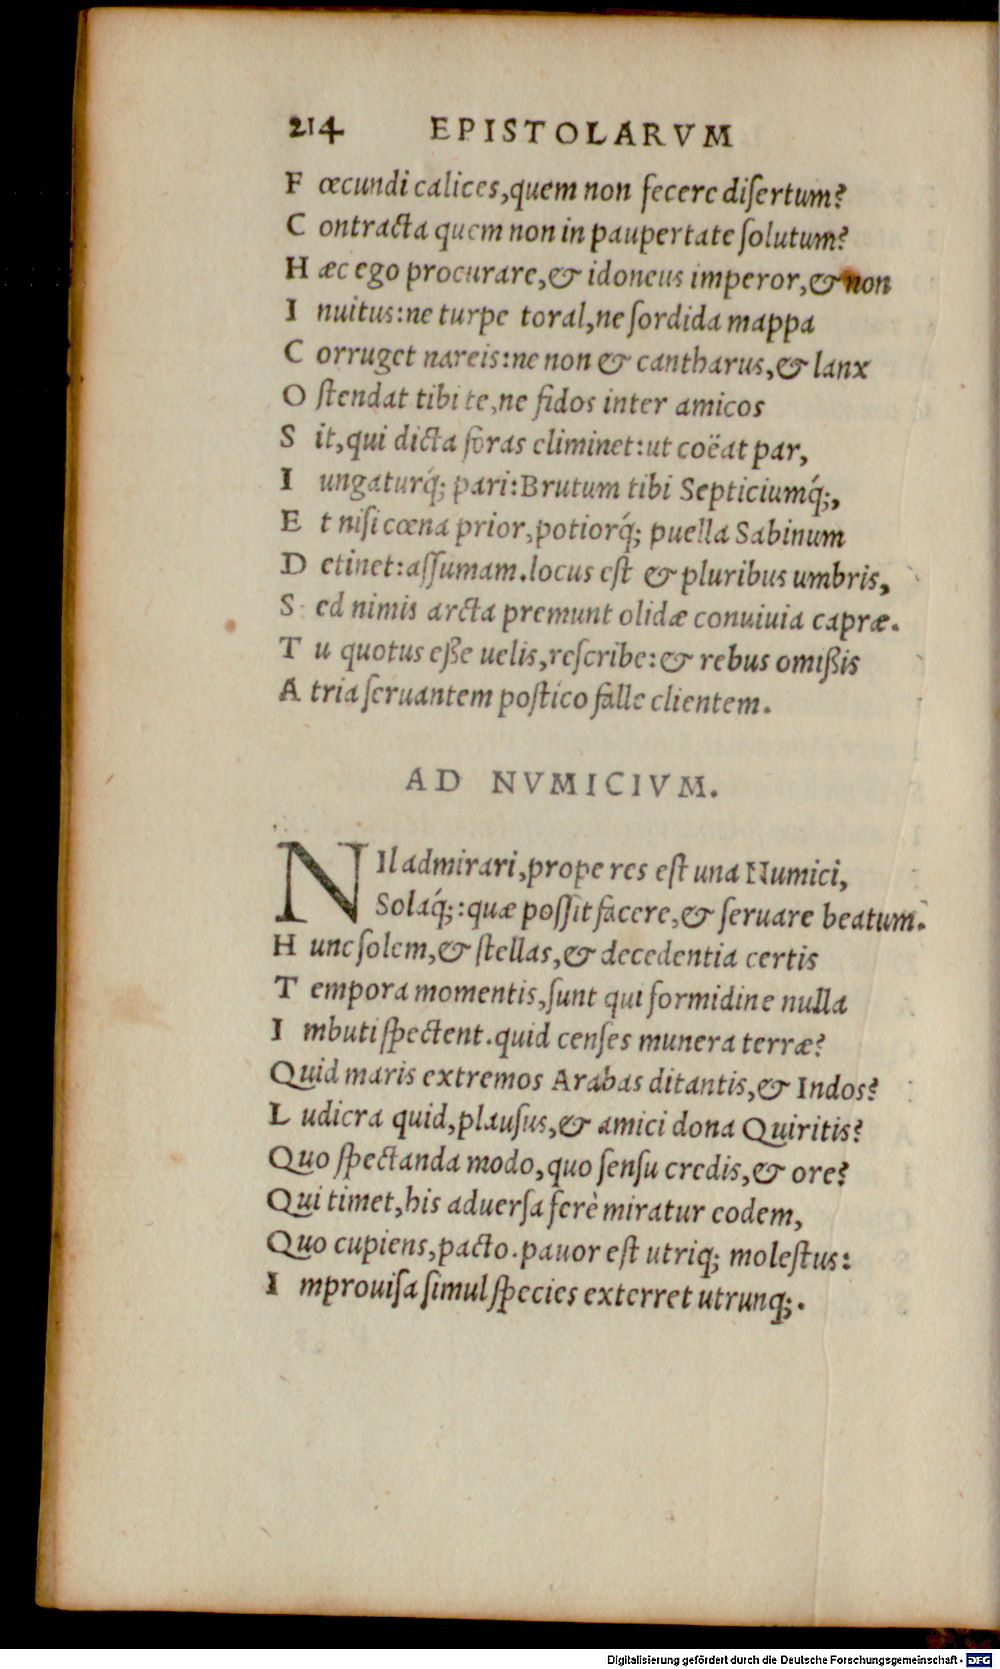 214 EPISTOLARVM
F œcundi calices,quem non fecere diſertum?
C ontracta quem non in paupertate ſolutum?
H æc ego procurare,& idoneus imperor,& non
I nuitus:ne turpe toral,ne ſordida mappa
C orruget nareis:ne non & cantharus,& lanx
O ſtendat tibi te,ne fidos inter amicos
S it,qui dicta foras eliminet:ut coëat par,
I ungaturq́; pari:Brutum tibi Septiciumq́;,
E t niſi cœna prior,potiorq́; puella Sabinum
D etinet:aſſumam.locus eſt & pluribus umbris,
S ed nimis arcta premunt olidæ conuiuia capræ.
T u quotus eße uelis,reſcribe:& rebus omißis
A tria ſeruantem poſtico falle clientem.
AD NVMICIVM.
NIl admirari,prope res eſt una Numici,
Solaq́;:quæ poſſit facere,& ſeruare beatum.
H unc ſolem,& ſtellas,& decedentia certis
T empora momentis,ſunt qui formidine nulla
I mbuti ſpectent.quid cenſes munera terræ?
Quid maris extremos Arabas ditantis,& Indos?
L udicra quid,plauſus,& amici dona Quiritis?
Quo ſpectanda modo,quo ſenſu credis,& ore?
Qui timet,his aduerſa ferè miratur eodem,
Quo cupiens,pacto.pauor eſt utriq; moleſtus:
I mprouiſa ſimul ſpecies exterret utrunq;.
Digitalisierung gefördert durch die Deutsche Forschungsgemeinschaft - DFG